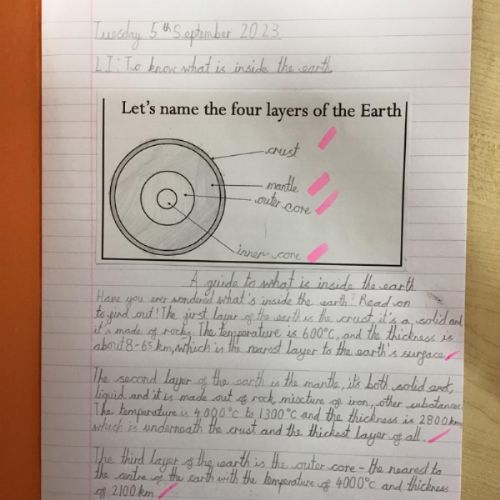 Tuesday 5th September 2023
LI: To know what is inside the earth
Let's name the four layers of the Earth
crust
mantle
outer core
inner core
A guide to what is inside the earth
Have you ever wondered what's inside the earth? Read on
to find out! The first layer of the earth is the crust, it's a solid and
it's made of rock. The temperature is 600°C, and the thickness is
about 8-65 km, which is the nearest layer to the earth's surface.
The second layer of the earth is the mantle, it's both solid and,
liquid and it is made out of rock, mixture of iron, other substances
The temperature is 4000°c to 1300°C and the thickness is 2800km
which is underneath the crust and the thickest layer of all.
The third layer of the earth is the outer core - the nearest to
the centre of the earth with the temperature of 4000°C and thickness
of 2100 km